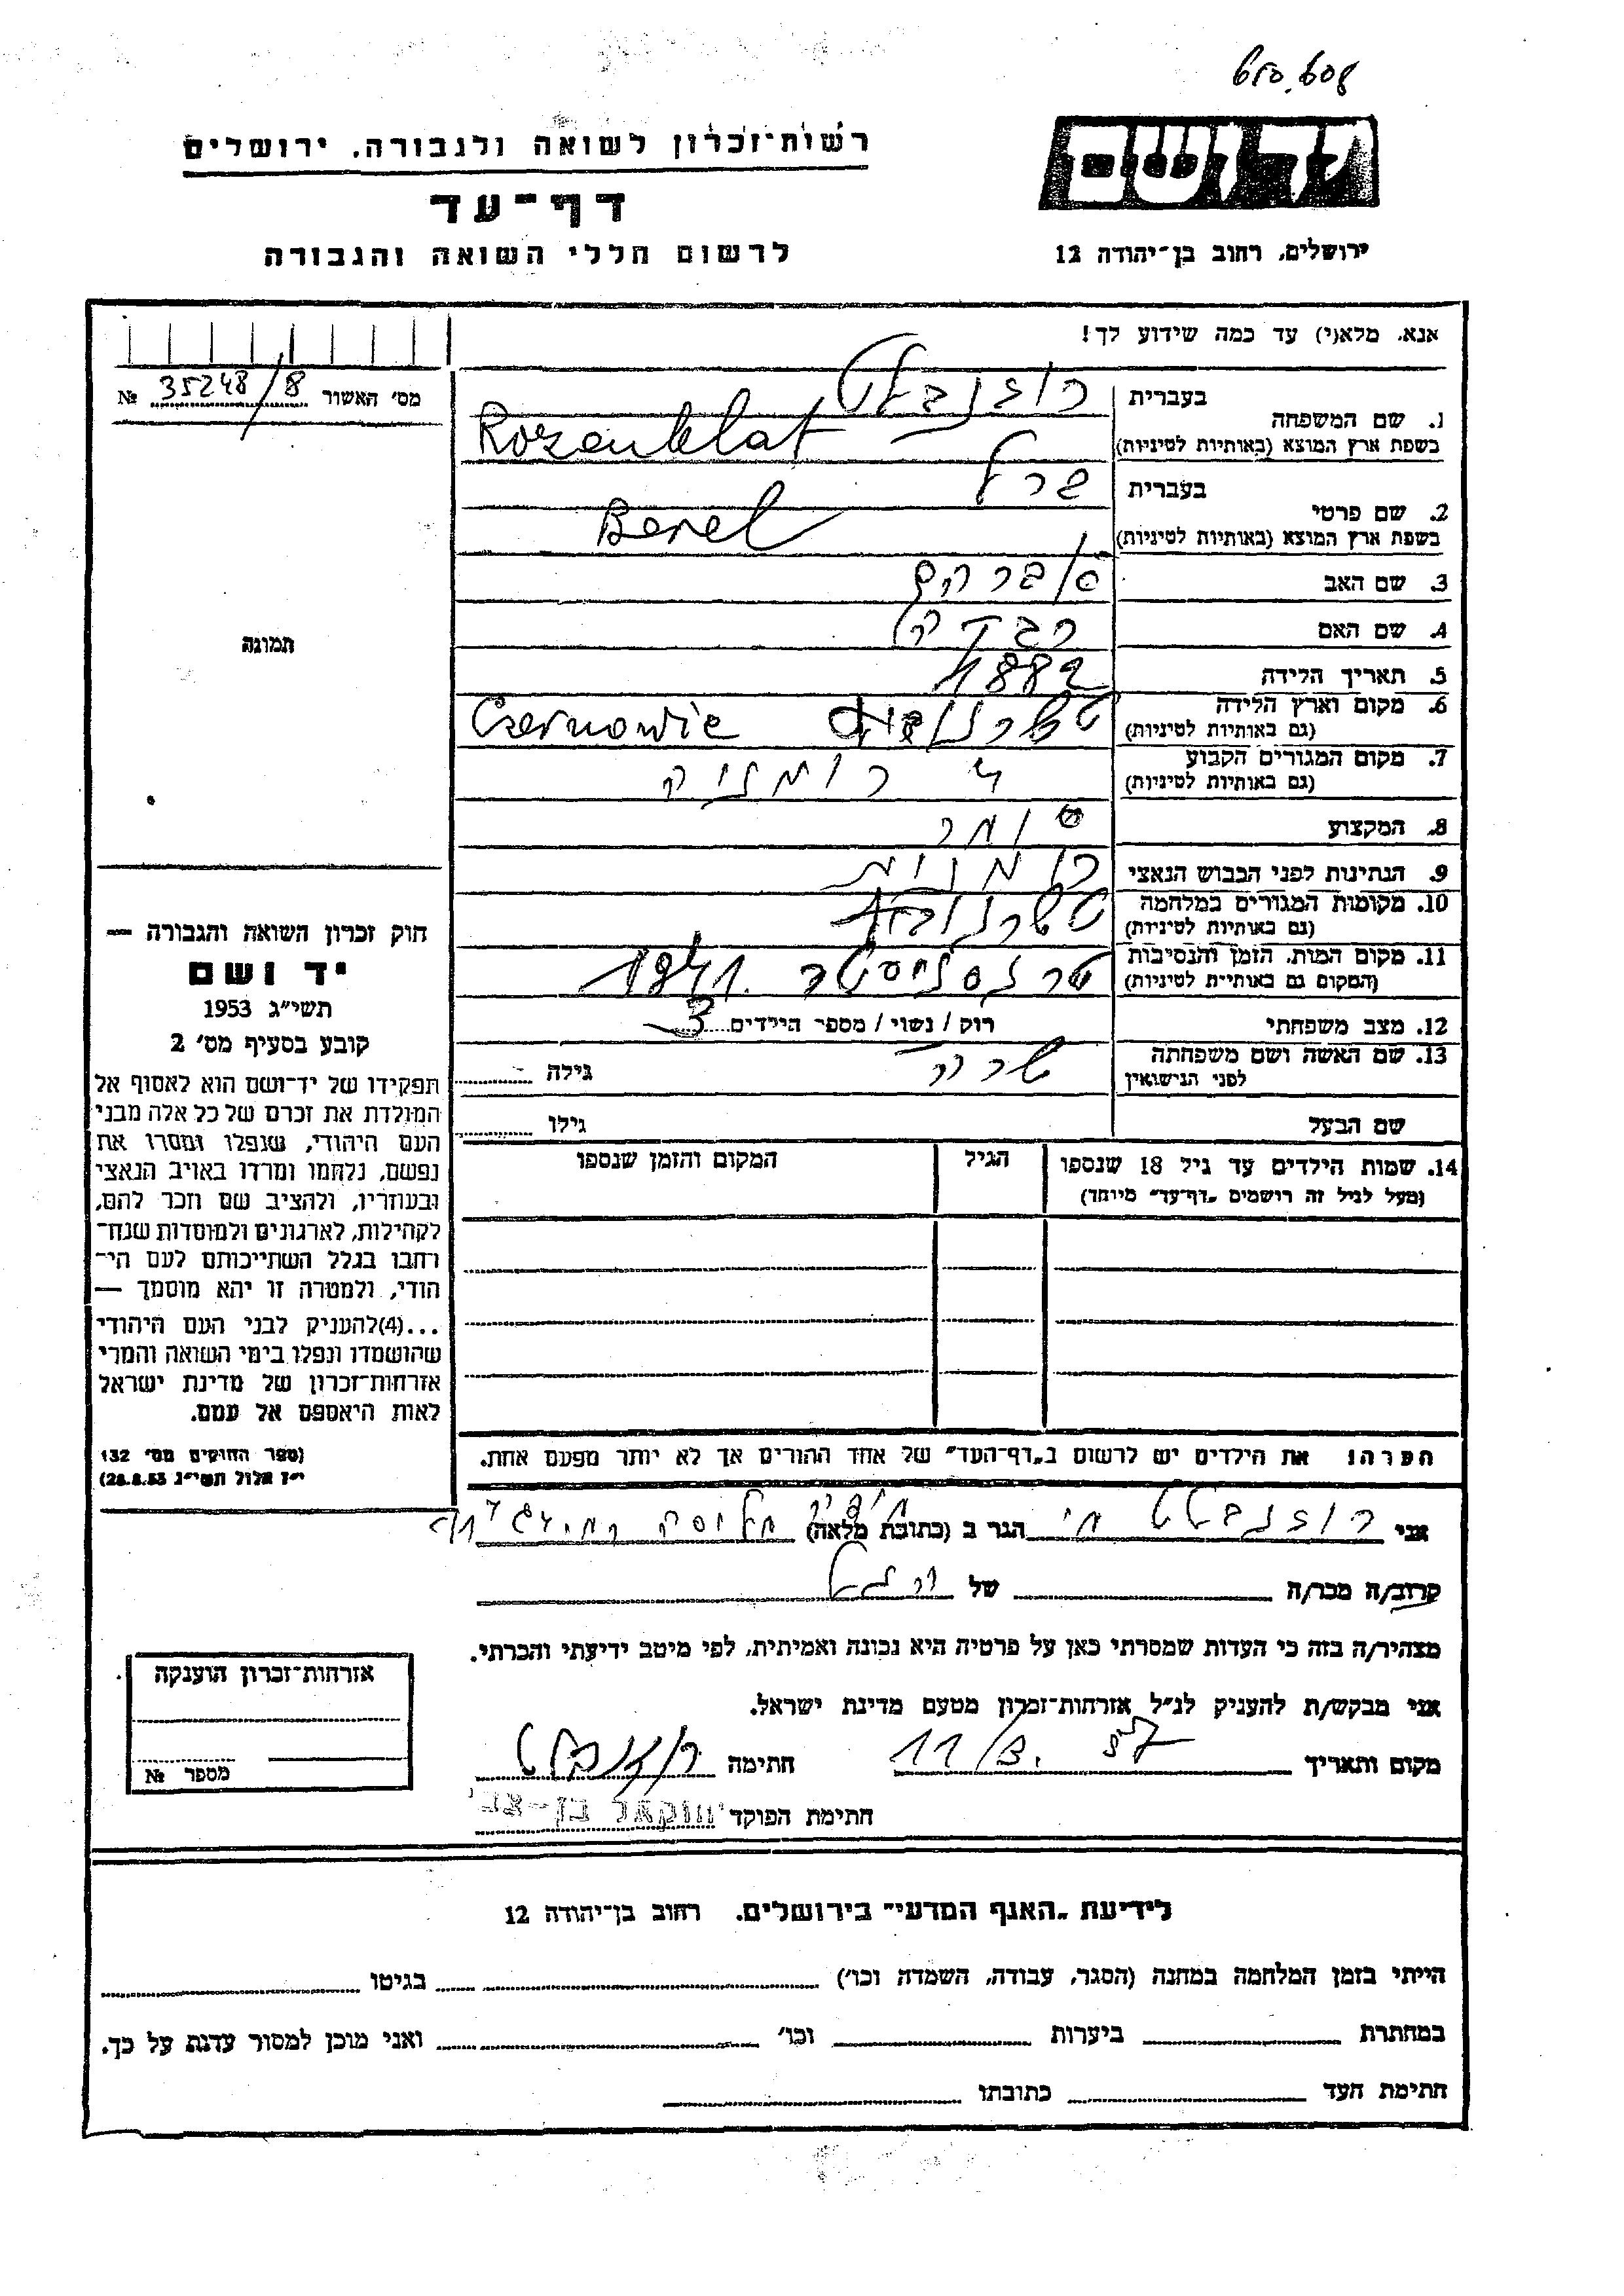 יד ושם
ירושלים, רחוב בן-יהודה 12
רשות-זכרון לשואה ולגבורה, ירושלים
דף-עד
לרשום חללי השואה והגבורה
אנא, מלא(י) עד כמה שידוע לך!
מס' האשור 35248/8 №
תמונה
חוק זכרון השואה והגבורה —
יד ושם
תשי"ג 1953
קובע בסעיף מס' 2
תפקידו של יד-ושם הוא לאסוף אל
המולדת את זכרם של כל אלה מבני
העם היהודי, שנפלו ומסרו את
נפשם, נלחמו ומרדו באויב הנאצי
ובעוזריו, ולהציב שם וזכר להם,
לקהילות, לארגונים ולמוסדות שנח-
רחבו בגלל השתייכותם לעם הי-
הודי, ולמטרה זו יהא מוסמך —
...(4)להעניק לבני העם היהודי
שהושמדו ונפלו בימי השואה והמרי
אזרחות-זכרון של מדינת ישראל
לאות היאספם אל עמם.
(ספר החוקים מס' 132
י"ז אלול תשי"ג 28.8.53)
1. שם המשפחה בעברית רוזנבלט
בשפת ארץ המוצא (באותיות לטיניות) Rozenblat
2. שם פרטי בעברית ברל
בשפת ארץ המוצא (באותיות לטיניות) Berel
3. שם האב אברהם
4. שם האם רבקה
5. תאריך הלידה 1882
6. מקום וארץ הלידה
(גם באותיות לטיניות) Czernowic
7. מקום המגורים הקבוע
(גם באותיות לטיניות)
8. המקצוע סוחר
9. הנתינות לפני הכבוש הנאצי רומנית
10. מקומות המגורים במלחמה
(גם באותיות לטיניות)
11. מקום המות, הזמן והנסיבות
(המקום גם באותיות לטיניות) טרנסניסטר 1941
12. מצב משפחתי רוק / נשוי / מספר הילדים 3
13. שם האשה ושם משפחתה שרה גילה
לפני הנישואין
שם הבעל גילו
14. שמות הילדים עד גיל 18 שנספו הגיל המקום והזמן שנספו
(מעל לגיל זה רושמים "דף-עד" מיוחד)
הערה: את הילדים יש לרשום ב"דף-העד" של אחד ההורים אך לא יותר מפעם אחת.
אני רוזנבלט הגר ב (כתובת מלאה) חיפה
קרוב/ה מכר/ה של
מצהיר/ה בזה כי העדות שמסרתי כאן על פרטיה היא נכונה ואמיתית, לפי מיטב ידיעתי והכרתי.
אני מבקש/ת להעניק לנ"ל אזרחות-זכרון מטעם מדינת ישראל.
מקום ותאריך 11/3. 57 חתימה רוזנבלט
חתימת הפוקד בן-צבי
אזרחות-זכרון הוענקה
מספר №
לידיעת "האגף המדעי" בירושלים, רחוב בן-יהודה 12
הייתי בזמן המלחמה במחנה (הסגר, עבודה, השמדה וכו') בגיטו
במחתרת ביערות וכו' ואני מוכן למסור עדות על כך.
חתימת העד כתובתו